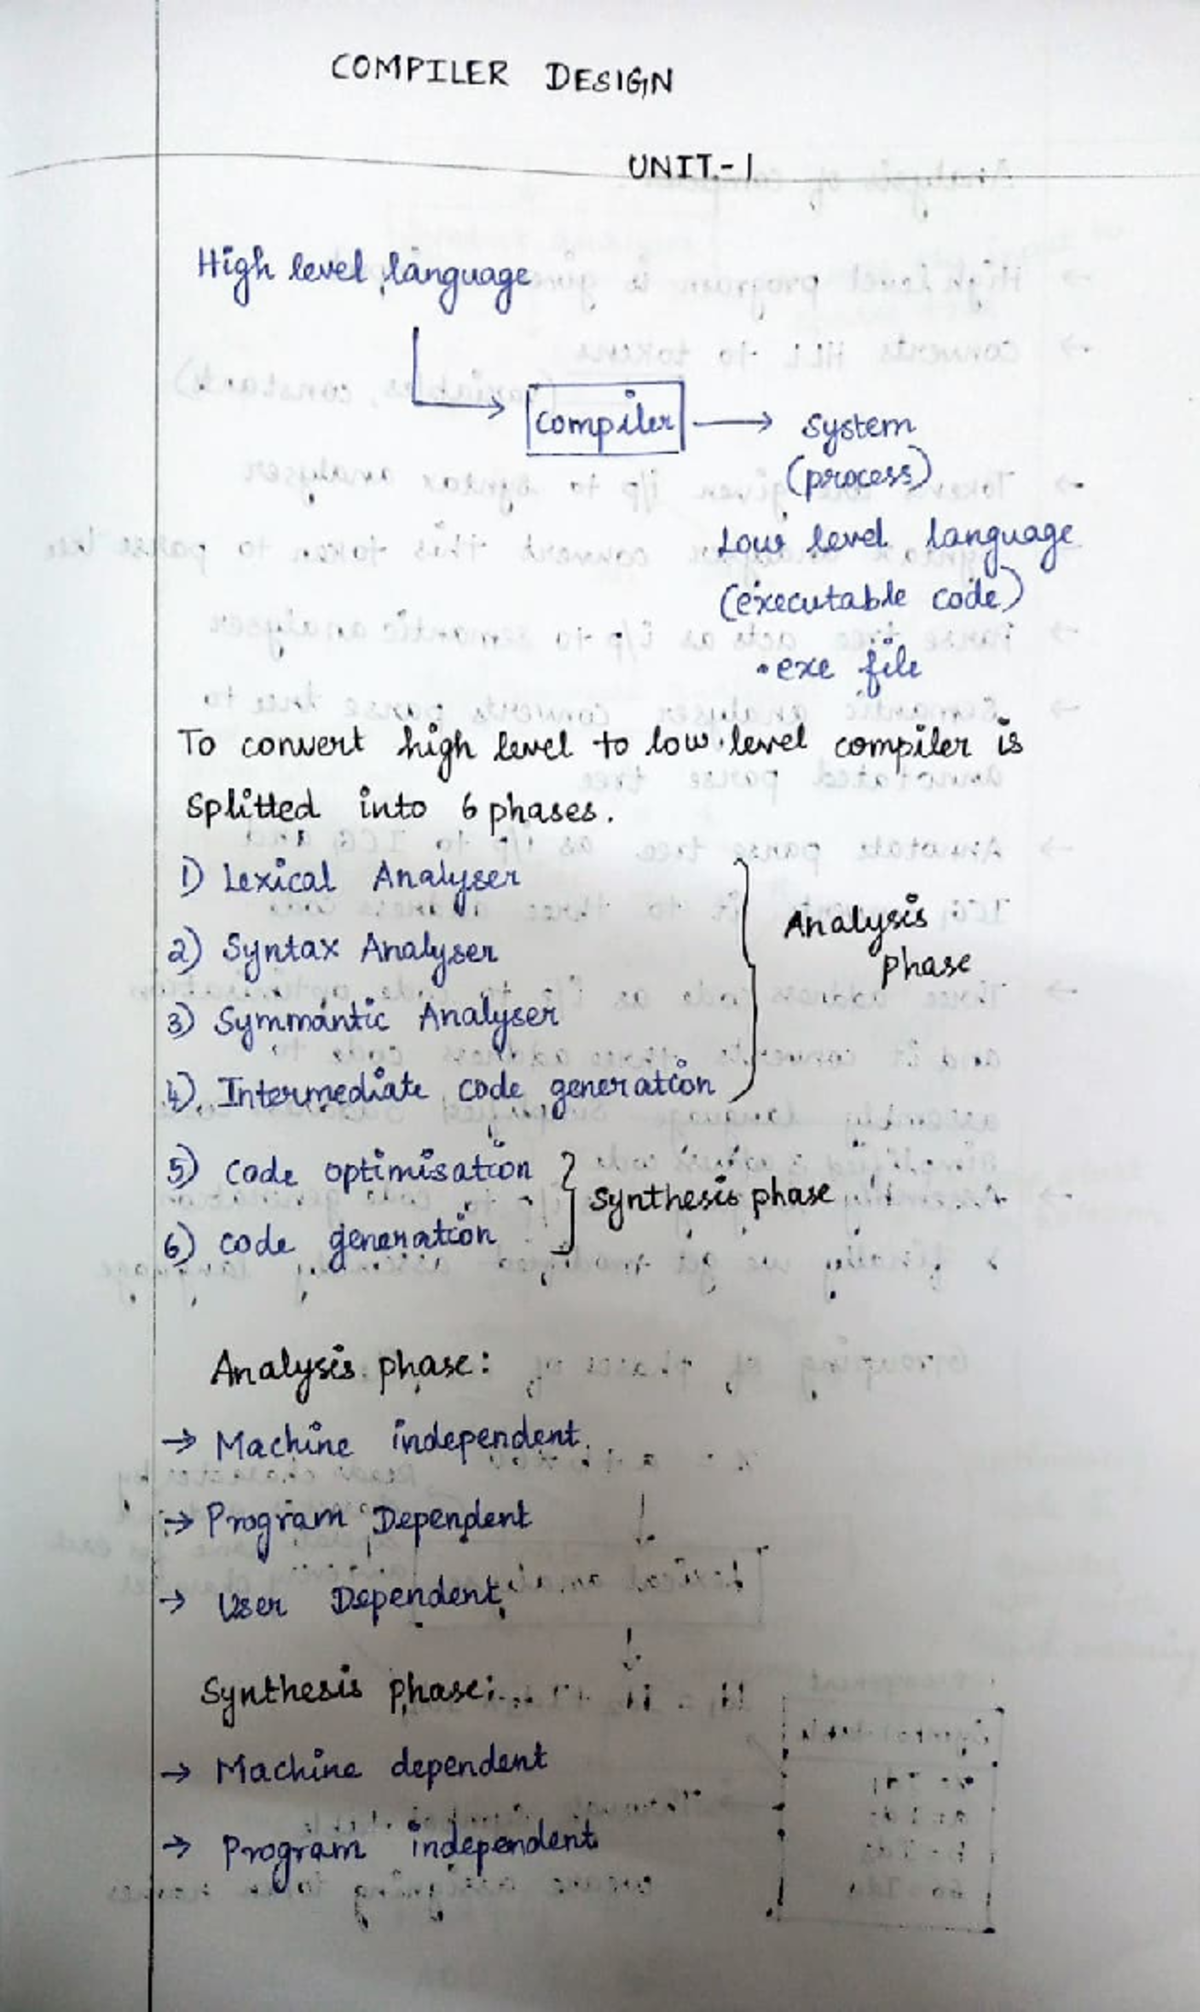 COMPILER DESIGN
UNIT-1
High level language
Compiler → System
(process)
Low level language
(executable code)
.exe file
To convert high level to low level compiler is
Splitted into 6 phases.
1) Lexical Analyser
2) Syntax Analyser
3) Symmantic Analyser
4) Intermediate code generation
Analysis
phase
5) Code optimisation
6) code generation
Synthesis phase
Analysis phase:
→ Machine independent
→ Program Dependent
→ User Dependent
Synthesis phase:
→ Machine dependent
→ Program independent